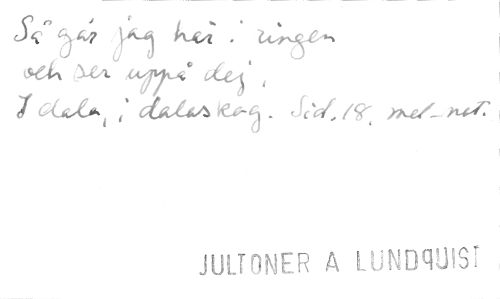 Så går jag här i ringen
och ser uppå dej,
I dala, i dalaskog. Sid. 18. mel-not.
JULTONER A LUNDQUIST